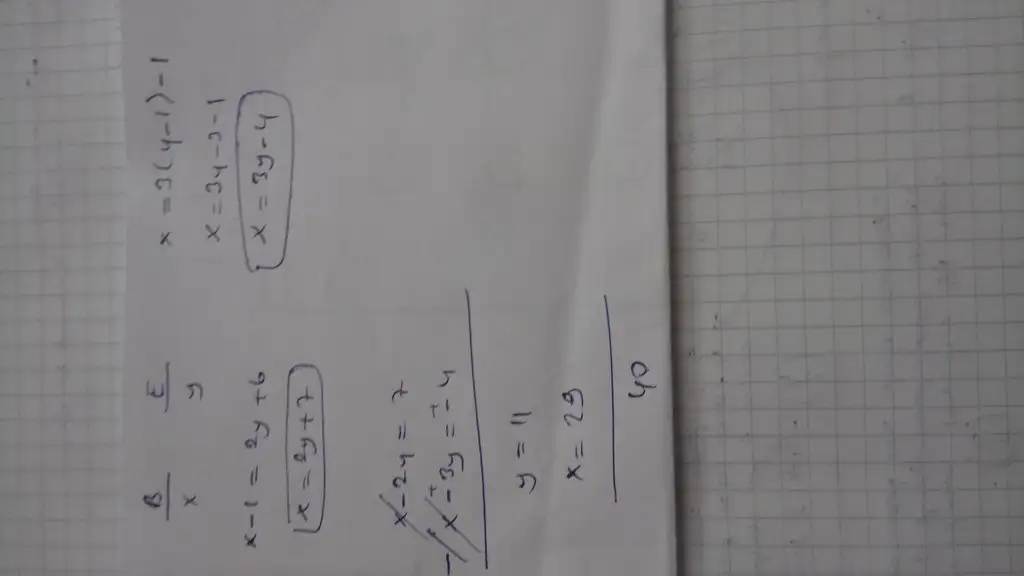 B E
x y
x-1 = 2y+6
x = 2y+7
x = 3(y-1)-1
x = 3y-3-1
x = 3y-4
x-2y = 7
- x-3y = -4
y = 11
x = 29
40